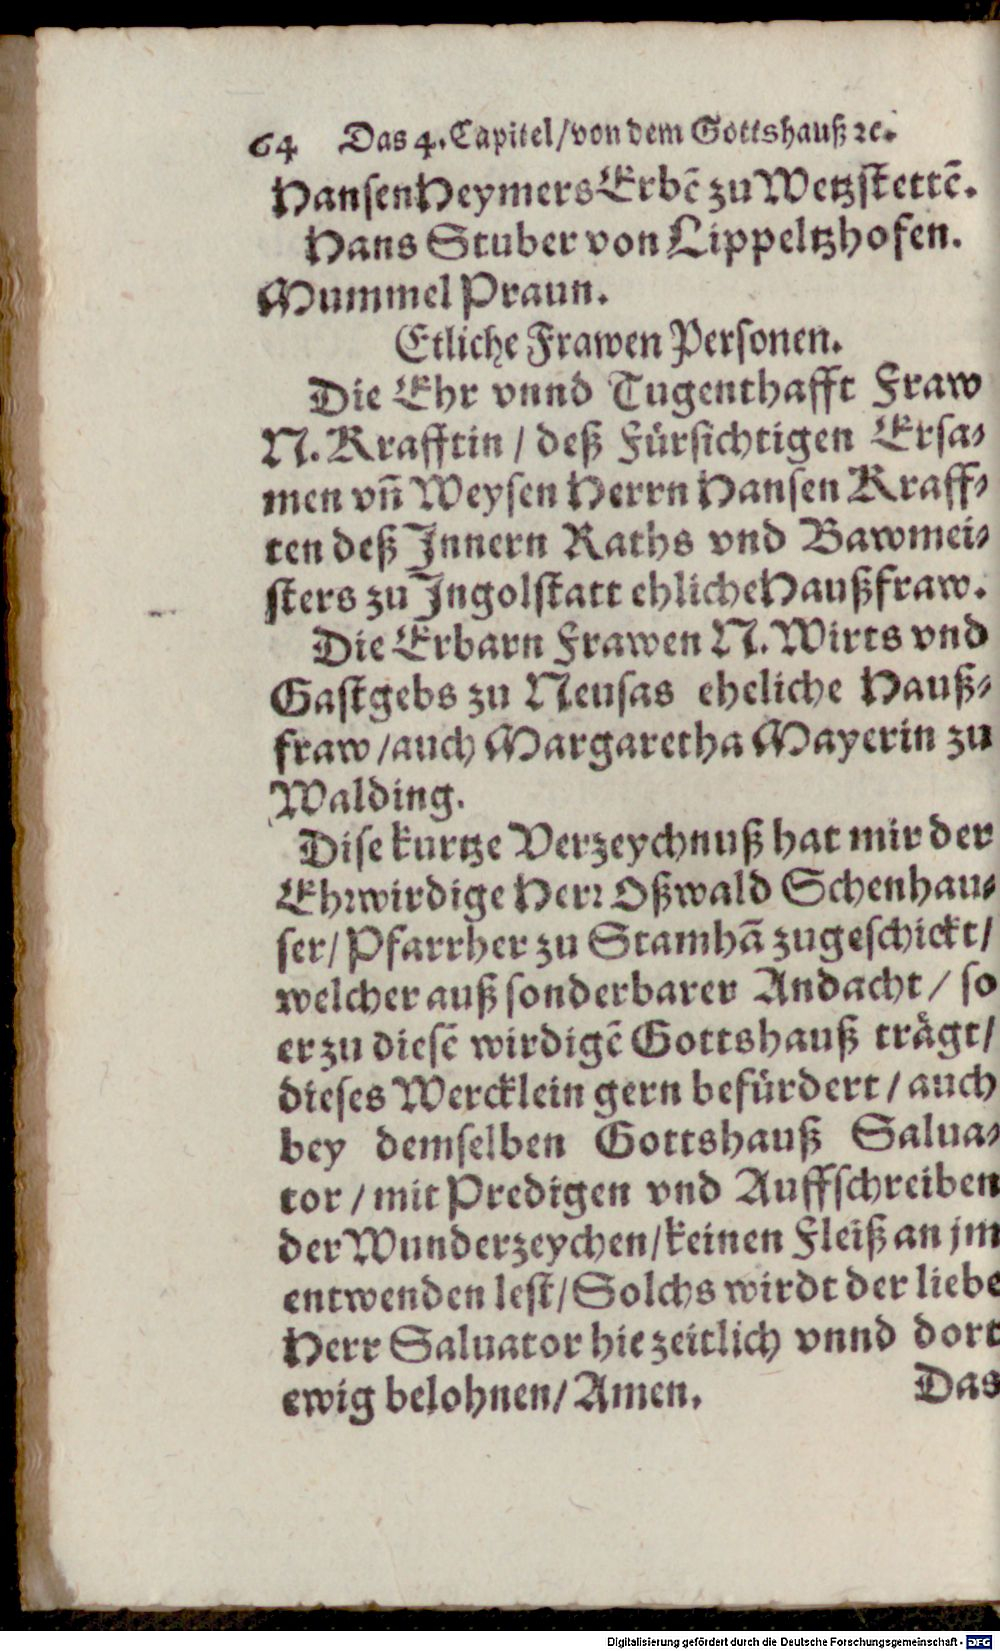 64 Das 4. Capitel/von dem Gottshauß ꝛc.
Hansen Heymers Erbē zu Wetzstettē.
Hans Stuber von Lippeltzhofen.
Mummel Praun.
Etliche Frawen Personen.
Die Ehr vnnd Tugenthafft Fraw
N. Krafftin / deß Fürsichtigen Ersa-
men vñ Weysen Herrn Hansen Kraff-
ten deß Innern Raths vnd Bawmei-
sters zu Ingolstatt ehliche Haußfraw.
Die Erbarn Frawen N. Wirts vnd
Gastgebs zu Neusas eheliche Hauß-
fraw /auch Margaretha Mayerin zu
Walding.
Dise kurtze Verzeychnuß hat mir der
Ehrwirdige Herr Oßwald Schenhau-
ser/ Pfarrher zu Stamhā zugeschickt/
welcher auß sonderbarer Andacht / so
er zu diesē wirdigē Gottshauß trägt/
dieses Wercklein gern befürdert / auch
bey demselben Gottshauß Salua-
tor / mit Predigen vnd Auffschreiben
der Wunderzeychen/keinen Fleiß an jm
entwenden lest/ Solchs wirdt der liebe
Herr Saluator hie zeitlich vnnd dort
ewig belohnen/ Amen. Das
Digitalisierung gefördert durch die Deutsche Forschungsgemeinschaft - DFG